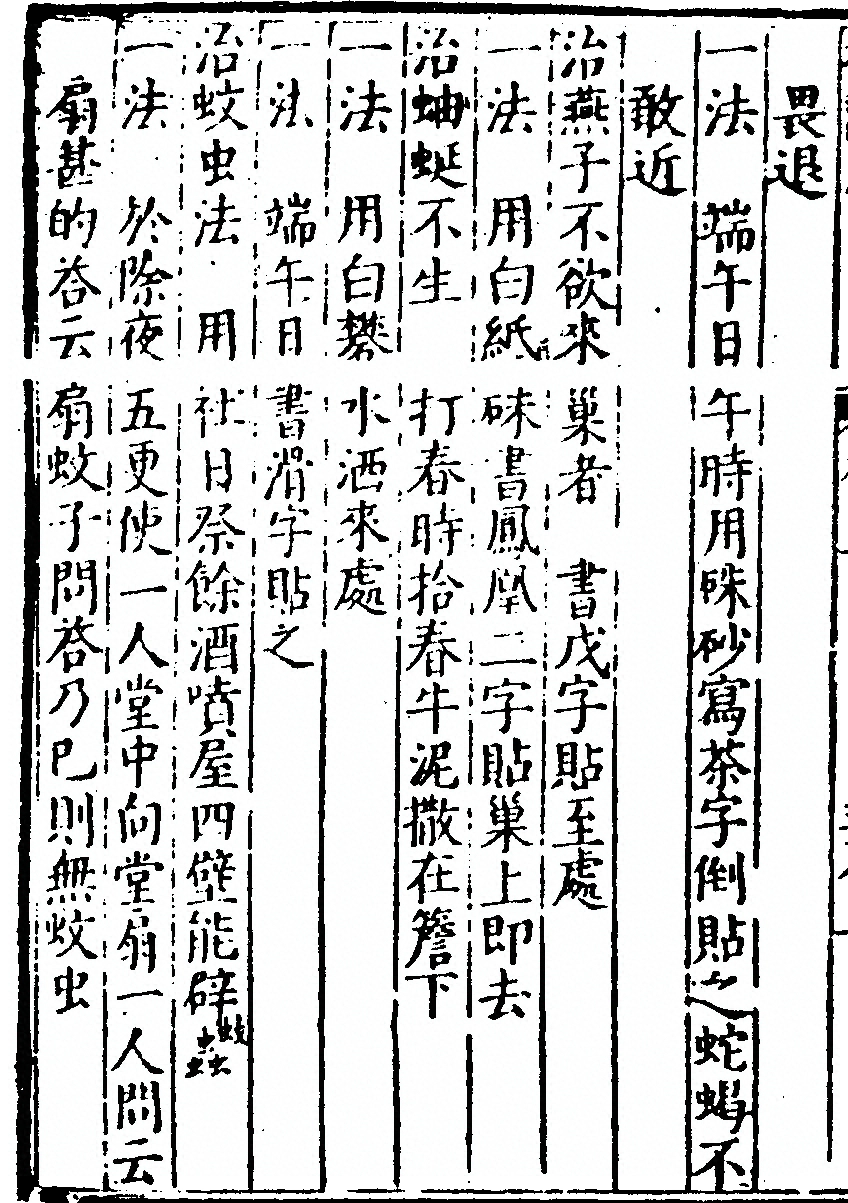 畏退
一法 端午日午時用硃砂寫茶字倒貼之蛇蝎不
敢近
治燕子不欲來巢者 書戊字貼至處
一法 用白紙硃書鳳凰二字貼巢上即去
治蚰蜒不生 打春時拾春牛泥撒在簷下
一法 用白礬水洒來處
一法 端午日書滑字貼之
治蚊虫法 用社日祭餘酒噴屋四壁能辟蚊蟲
一法 於除夜五更使一人堂中向堂扇一人問云
扇甚的荅云扇蚊子問荅乃已則無蚊虫